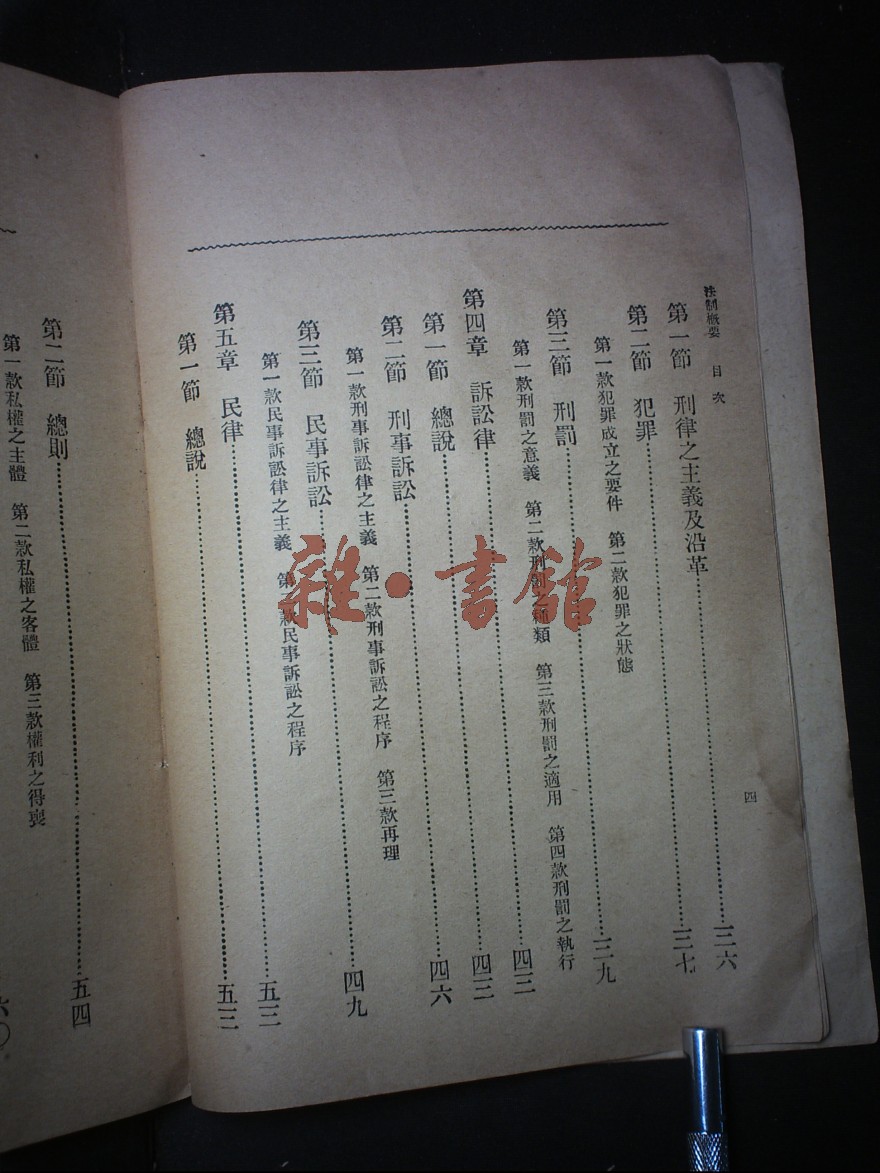 法制概要 目次 四
第一節 刑律之主義及沿革……三六
第二節 犯罪……三七
第一款犯罪成立之要件 第二款犯罪之狀態
第三節 刑罰……三九
第一款刑罰之意義 第二款刑罰之種類 第三款刑罰之適用 第四款刑罰之執行
第四章 訴訟律……四三
第一節 總說……四三
第二節 刑事訴訟……四六
第一款刑事訴訟律之主義 第二款刑事訴訟之程序 第三款再理
第三節 民事訴訟……四九
第一款民事訴訟律之主義 第二款民事訴訟之程序
第五章 民律……五三
第一節 總說……五三
第二節 總則……五四
第一款私權之主體 第二款私權之客體 第三款權利之得喪
六〇
雜·書館